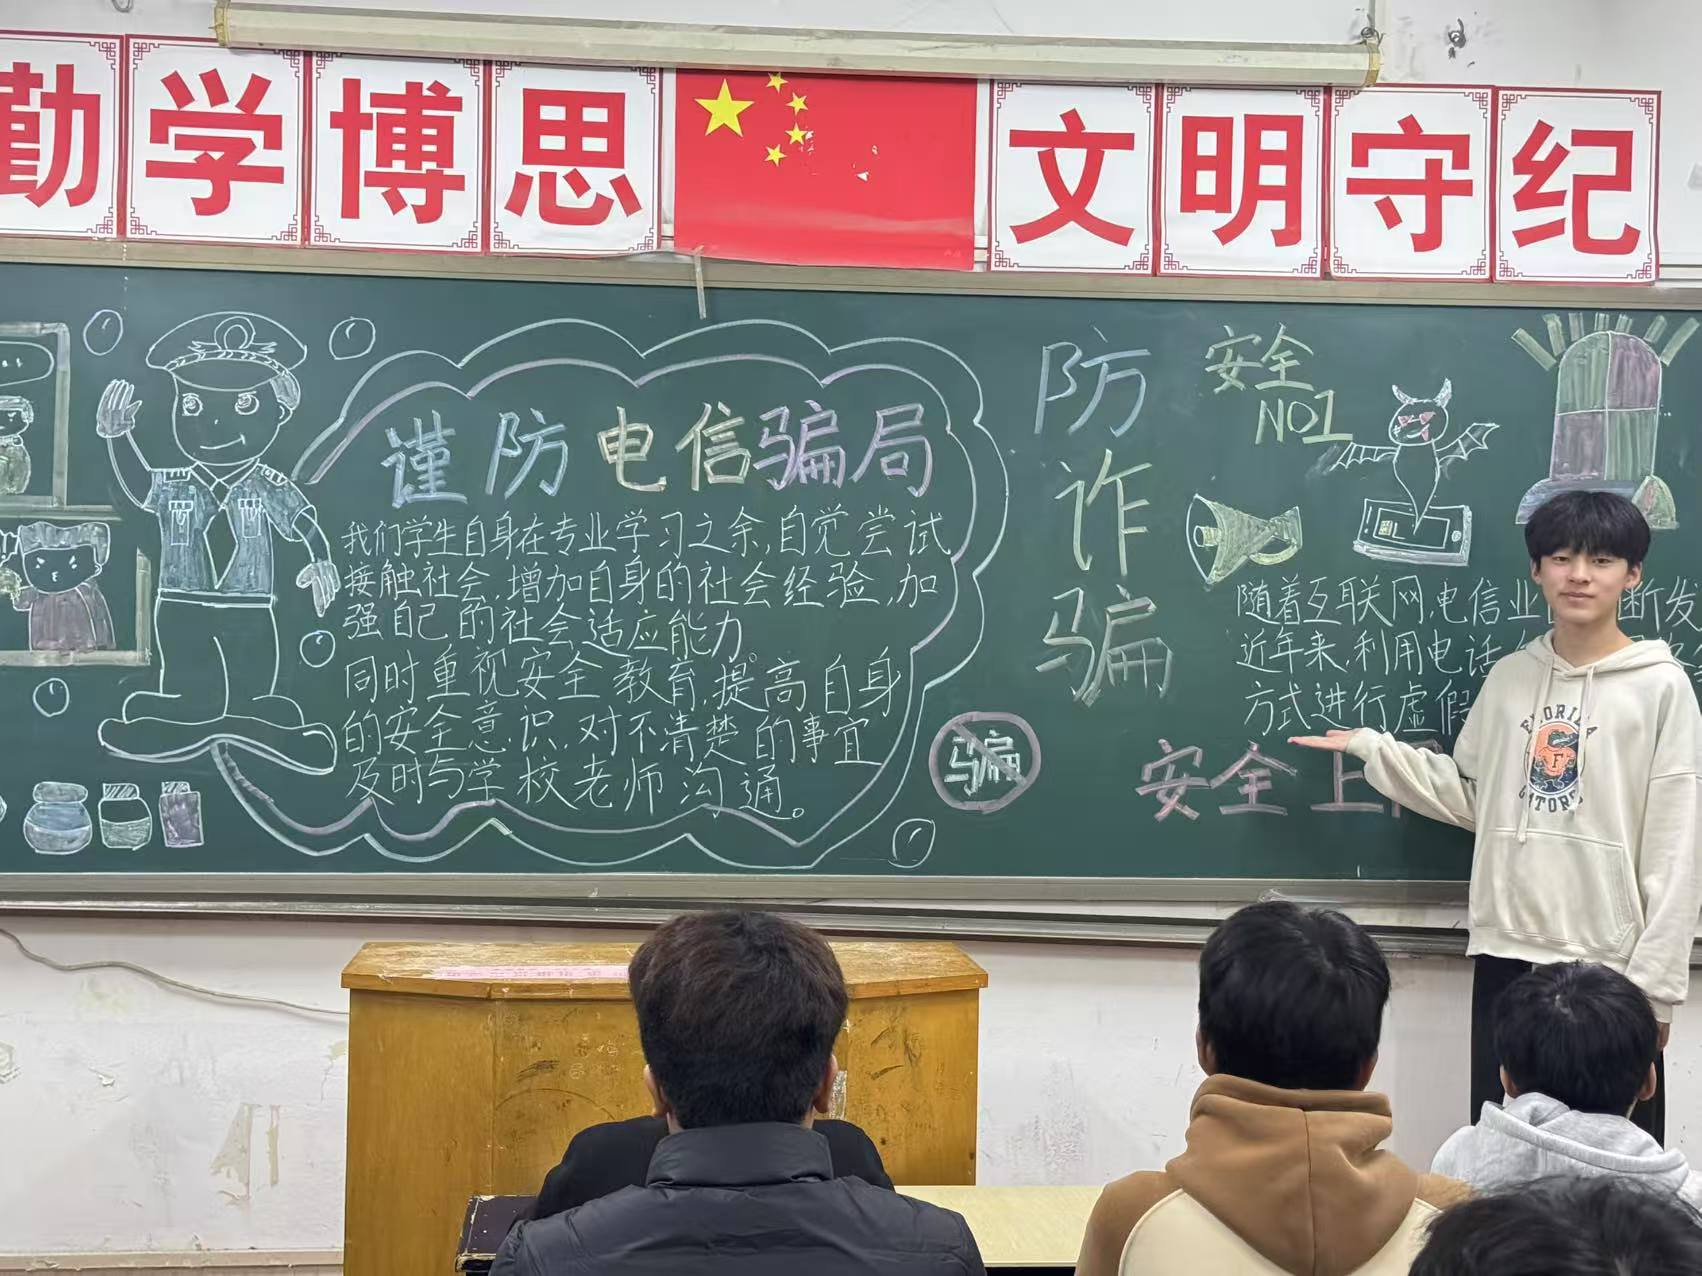 勤学博思
文明守纪
谨防电信骗局
我们学生自身在专业学习之余,自觉尝试
接触社会,增加自身的社会经验,加
强自己的社会适应能力。
同时重视安全教育,提高自身
的安全意识,对不清楚的事宜
及时与学校老师沟通。
骗
防诈骗
安全
NO1
随着互联网,电信业 断发
近年来,利用电话
方式进行虚假
安全上
FLORIDA
F
GATORS